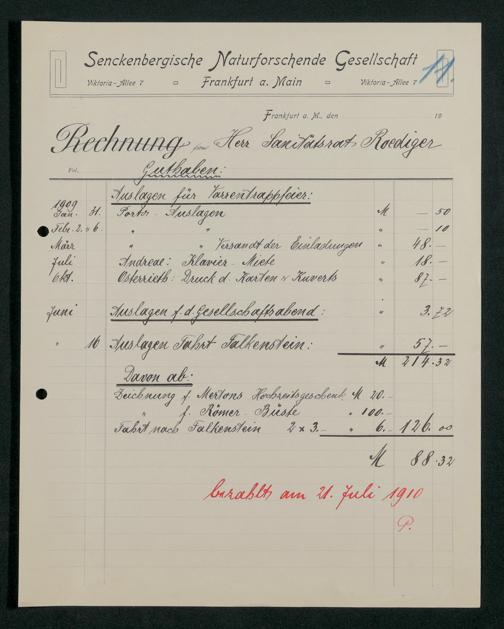 Senckenbergische Naturforschende Gesellschaft
11.
Viktoria-Allee 7 Frankfurt a. Main Viktoria-Allee 7
Frankfurt a. M., den 19
Rechnung für Herr Sanitätsrat Roediger
Fol. Guthaben:
Auslagen für Varrentrappfeier:
1909
Jan. 31. Porto-Auslagen M — 50
Febr. 2. " 6 " " — 10
März " " Versandt der Einladungen " 48.—
Juli Andreae: Klavier-Miete " 18.—
Okt. Osterrieth: Druck d. Karten u Kuverts " 87.—
Juni Auslagen f. d. Gesellschaftsabend: " 3.72
" 16 Auslagen Fahrt Falkenstein: " 57.—
M 214.32
Davon ab:
Zeichnung f. Mertons Hochzeitsgeschenk M 20.—
" f. Römer-Büste " 100.—
Fahrt nach Falkenstein 2 x 3.— " 6.— 126.00
M 88.32
bezahlt am 21. Juli 1910
P.